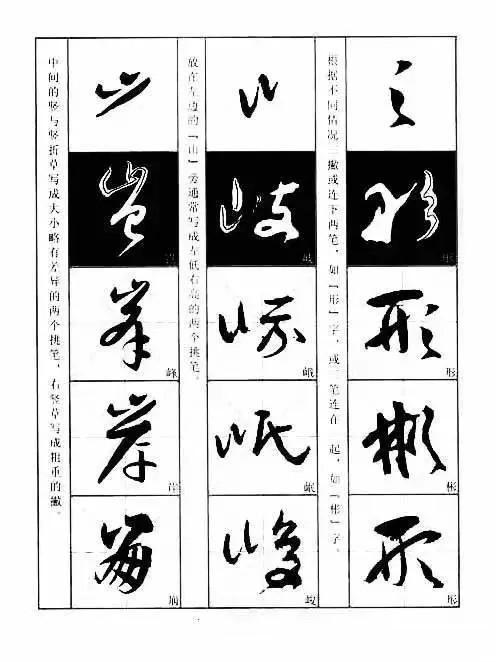 形
彬
形
根据不同情况三撇或连下两笔，如「形」字，或三笔连在一起，如「彬」字。
岐
峨
岷
峻
放在左边的「山」旁通常写成左低右高的两个挑笔。
峰
岸
中间的竖与竖折草写成大小略有差异的两个挑笔，右竖草写成粗重的撇。